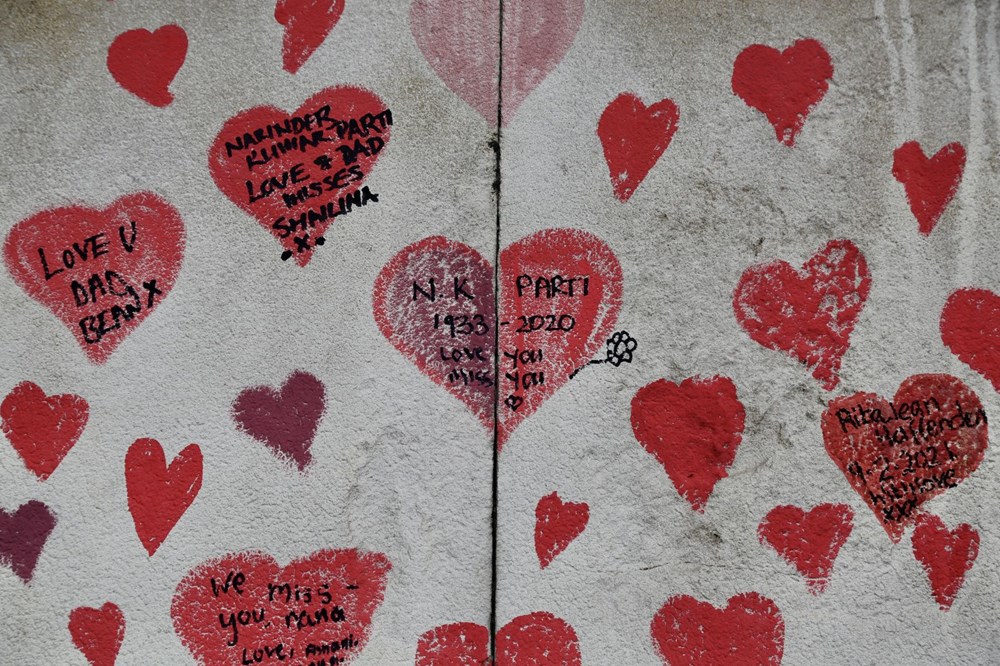 NARINDER
KUMAR PARTI
LOVE & DAD
MISSES
SHNLINA
x
LOVE U
DAD,
BEAN x
N.K PARTI
1933 - 2020
Love you
miss you
Rita Jean
9-2-2021
xxx
We miss
you, nana
Love, Amani.